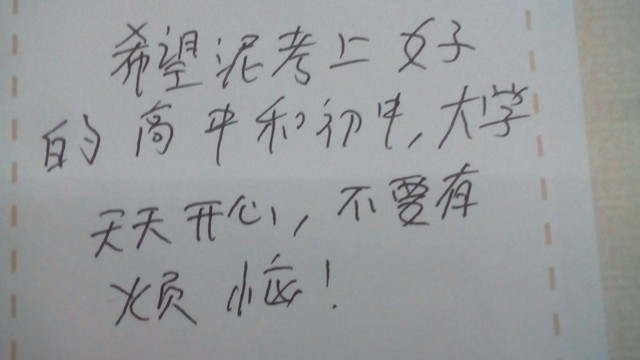 希望泥考上好
的高中和初中,大学
天天开心,不要有
烦恼!